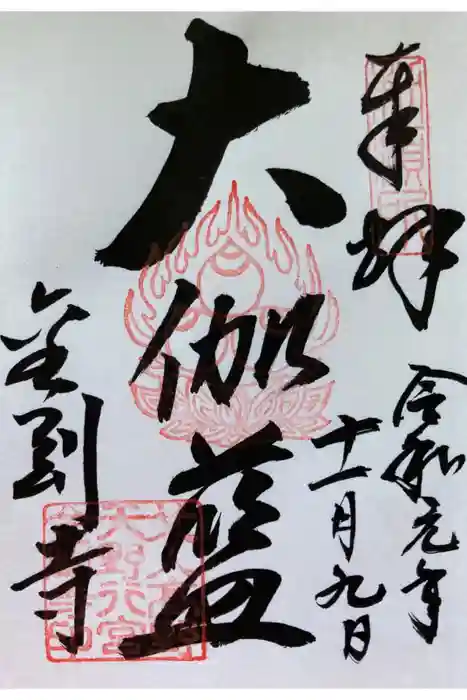 奉拝
令和元年
十一月九日
大伽藍
金剛寺